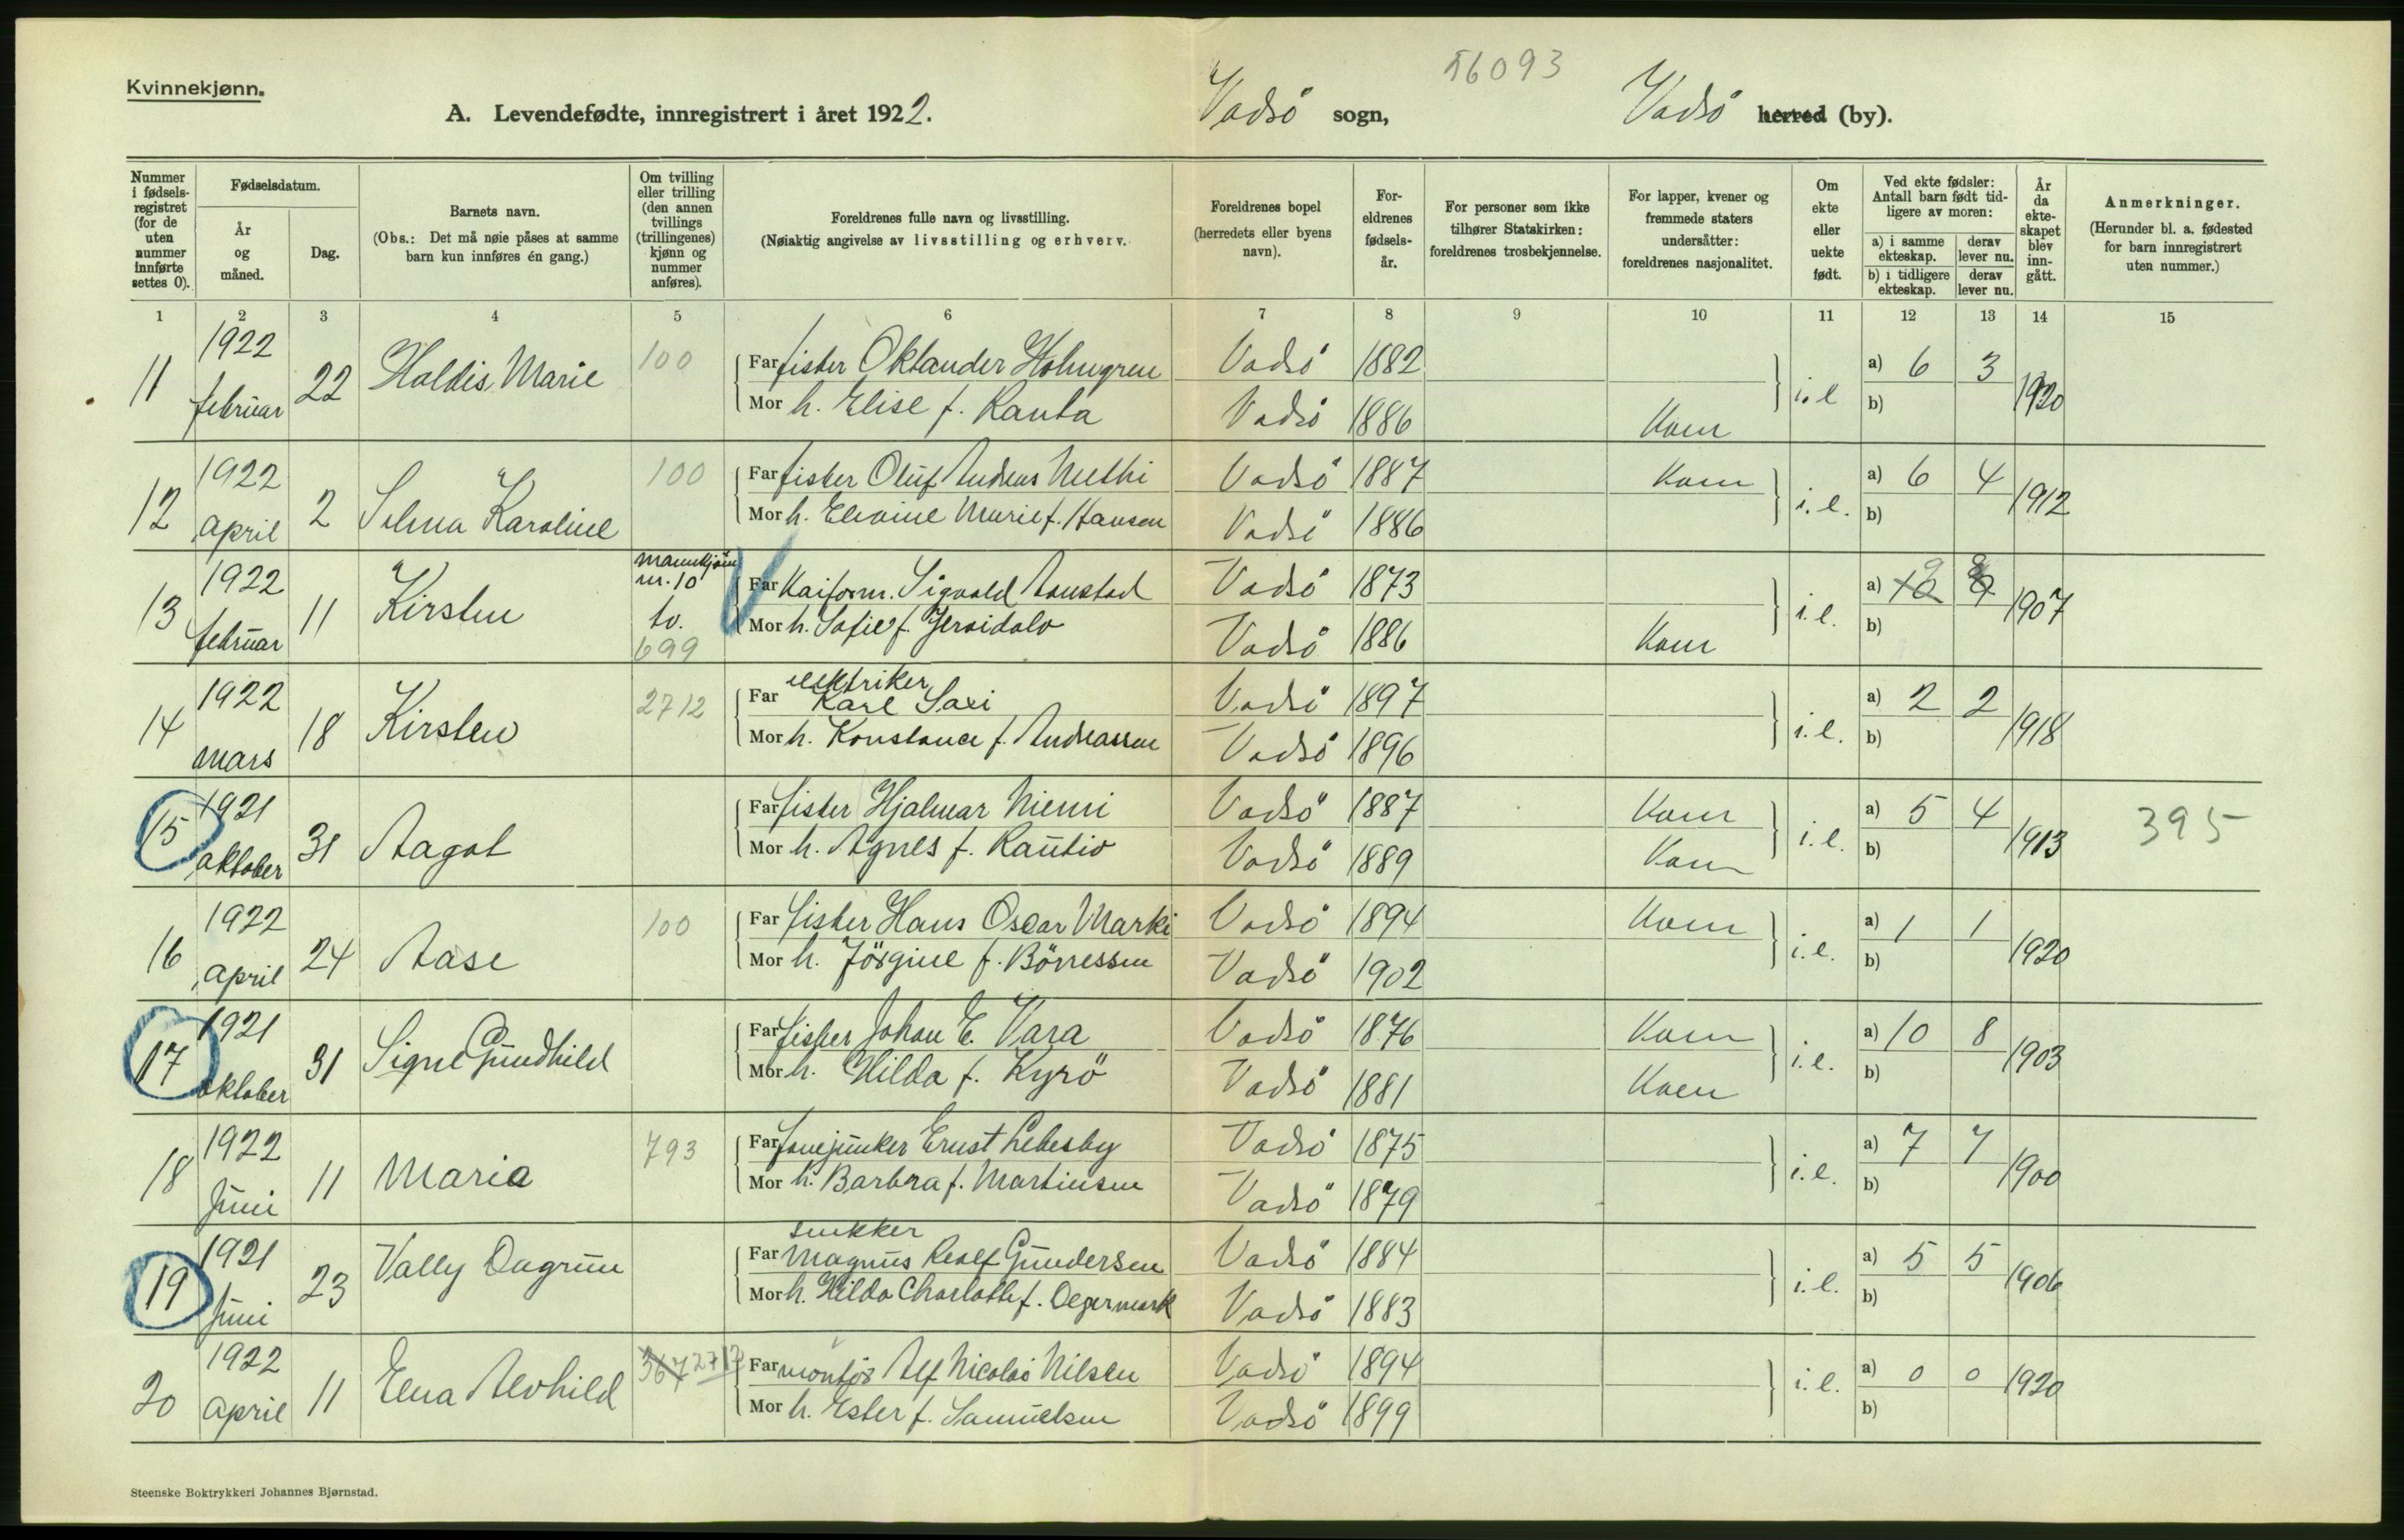 Kvinnekjønn.
A. Levendefødte, innregistrert i året 1922.
Vadsö sogn,
56093
Vadsö herred (by).
Nummer i fødsels-registret (for de uten nummer innførte settes 0).
Fødselsdatum.
År og måned.
Dag.
Barnets navn.
(Obs.: Det må nøie påses at samme barn kun innføres én gang.)
Om tvilling eller trilling (den annen tvillings (trillingenes) kjønn og nummer anføres).
Foreldrenes fulle navn og livsstilling.
(Nøiaktig angivelse av livsstilling og erhverv.
Foreldrenes bopel (herredets eller byens navn).
For-eldrenes fødsels-år.
For personer som ikke tilhører Statskirken: foreldrenes trosbekjennelse.
For lapper, kvener og fremmede staters undersåtter: foreldrenes nasjonalitet.
Om ekte eller uekte født.
Ved ekte fødsler: Antall barn født tid-ligere av moren:
a) i samme ekteskap.
derav lever nu.
b) i tidligere ekteskap.
derav lever nu.
År da ekte-skapet blev inn-gått.
Anmerkninger.
(Herunder bl. a. fødested for barn innregistrert uten nummer.)
1 2 3 4 5 6 7 8 9 10 11 12 13 14 15
11 1922 februar 22 Haldis Marie 100
Far fisker Oklander Holmgren Vadsö 1882
Mor h. Elise f. Ranta Vadsö 1886 Kven
i. e. a) 6 3 b) 1920
12 1922 april 2 Selma Karoline 100
Far fisker Oluf Andreas Methi Vadsö 1887 Kven
Mor h. Elevine Marie f. Hansen Vadsö 1886
i. e. a) 6 4 b) 1912
13 1922 februar 11 Kirsten mannkjönn nr. 10 tv. 699
Far Kaiform. Sigvald Aanstad Vadsö 1873
Mor h. Sofie f. Jeraidalo Vadsö 1886 Kven
i. e. a) 9 8 b) 1907
14 1922 mars 18 Kirsten 2712
Far elektriker Karl Saxi Vadsö 1897
Mor h. Konstance f. Andreassen Vadsö 1896
i. e. a) 2 2 b) 1918
15 1921 oktober 31 Aagot
Far fisker Hjalmar Niemi Vadsö 1887 Kven
Mor h. Agnes f. Rautio Vadsö 1889 Kven
i. e. a) 5 4 b) 1913 395
16 1922 april 24 Aase 100
Far fisker Hans Oscar Marki Vadsö 1894 Kven
Mor h. Jörgine f. Börressen Vadsö 1902
i. e. a) 1 1 b) 1920
17 1921 oktober 31 Signe Gundhild
Far fisker Johan E. Vara Vadsö 1876 Kven
Mor h. Hilda f. Kyrö Vadsö 1881 Kven
i. e. a) 10 8 b) 1903
18 1922 Juni 11 Maria 793
Far fanejunker Ernst Lebesby Vadsö 1875
Mor h. Barbra f. Martinsen Vadsö 1879
i. e. a) 7 7 b) 1900
19 1921 Juni 23 Vally Dagrun
Far snekker Magnus Rolf Gundersen Vadsö 1884
Mor h. Hilda Charlotte f. Degermark Vadsö 1883
i. e. a) 5 5 b) 1906
20 1922 april 11 Elna Alvhild 367 2717
Far montör Alf Nicolai Nilsen Vadsö 1894
Mor h. Ester f. Samuelsen Vadsö 1899
i. e. a) 0 0 b) 1920
Steenske Boktrykkeri Johannes Bjørnstad.